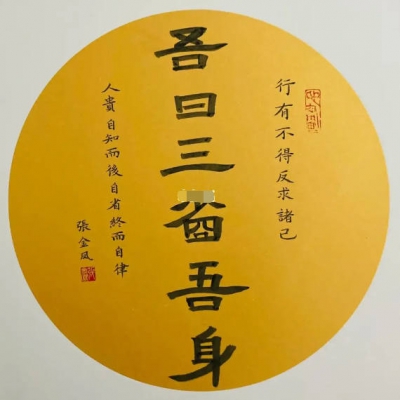 行有不得反求諸己
吾日三吾身
人貴自知而後自省終而自律
張金